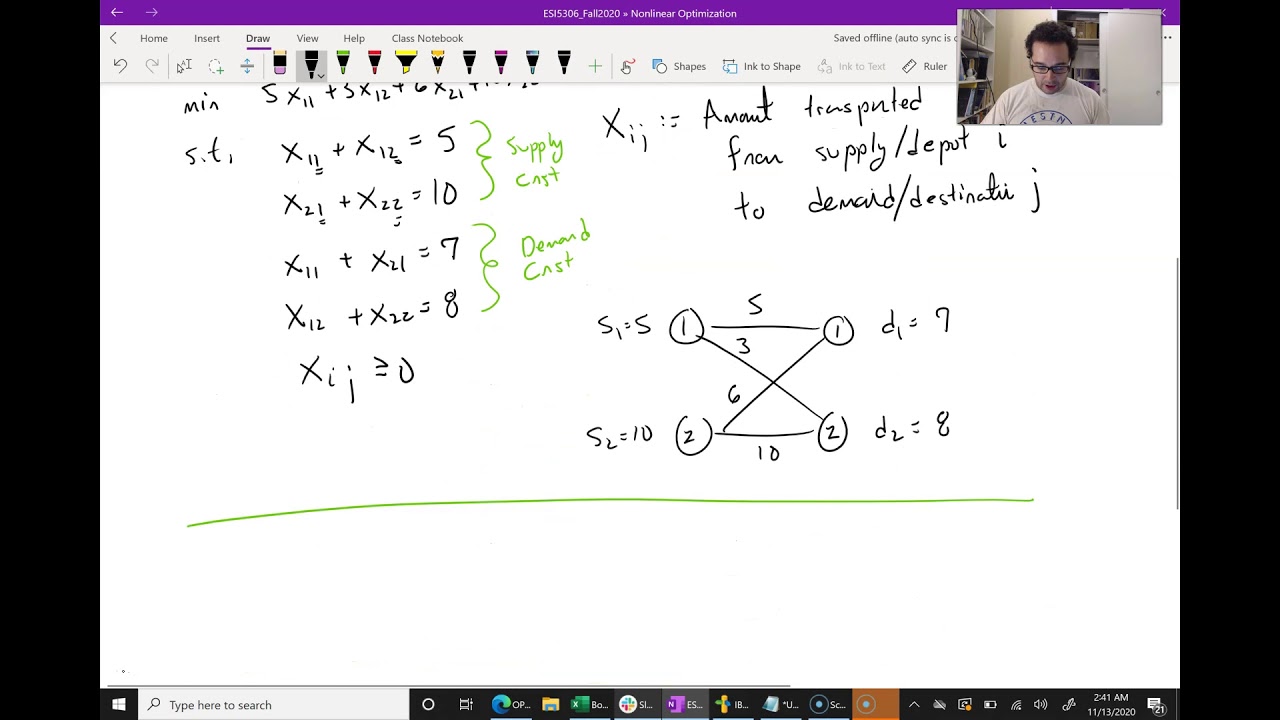 ESI5306_Fall2020 » Nonlinear Optimization
Home Insert Draw View Help Class Notebook
Saved offline (auto sync is
Shapes Ink to Shape Ink to Text Ruler
min 5 X11 + 3 X12 + 6 X21 +
s.t. X11 + X12 = 5
X21 + X22 = 10
Supply
Cnst
X11 + X21 = 7
X12 + X22 = 8
Demand
Cnst
Xij ≥ 0
Xij := Amount transported
from supply/depot i
to demand/destination j
S1=5 1 5 1 d1= 7
3
6
S2=10 2 10 2 d2= 8
Type here to search
OP... Bo... Sl... ES... IB... *U... Sc...
2:41 AM
11/13/2020
21